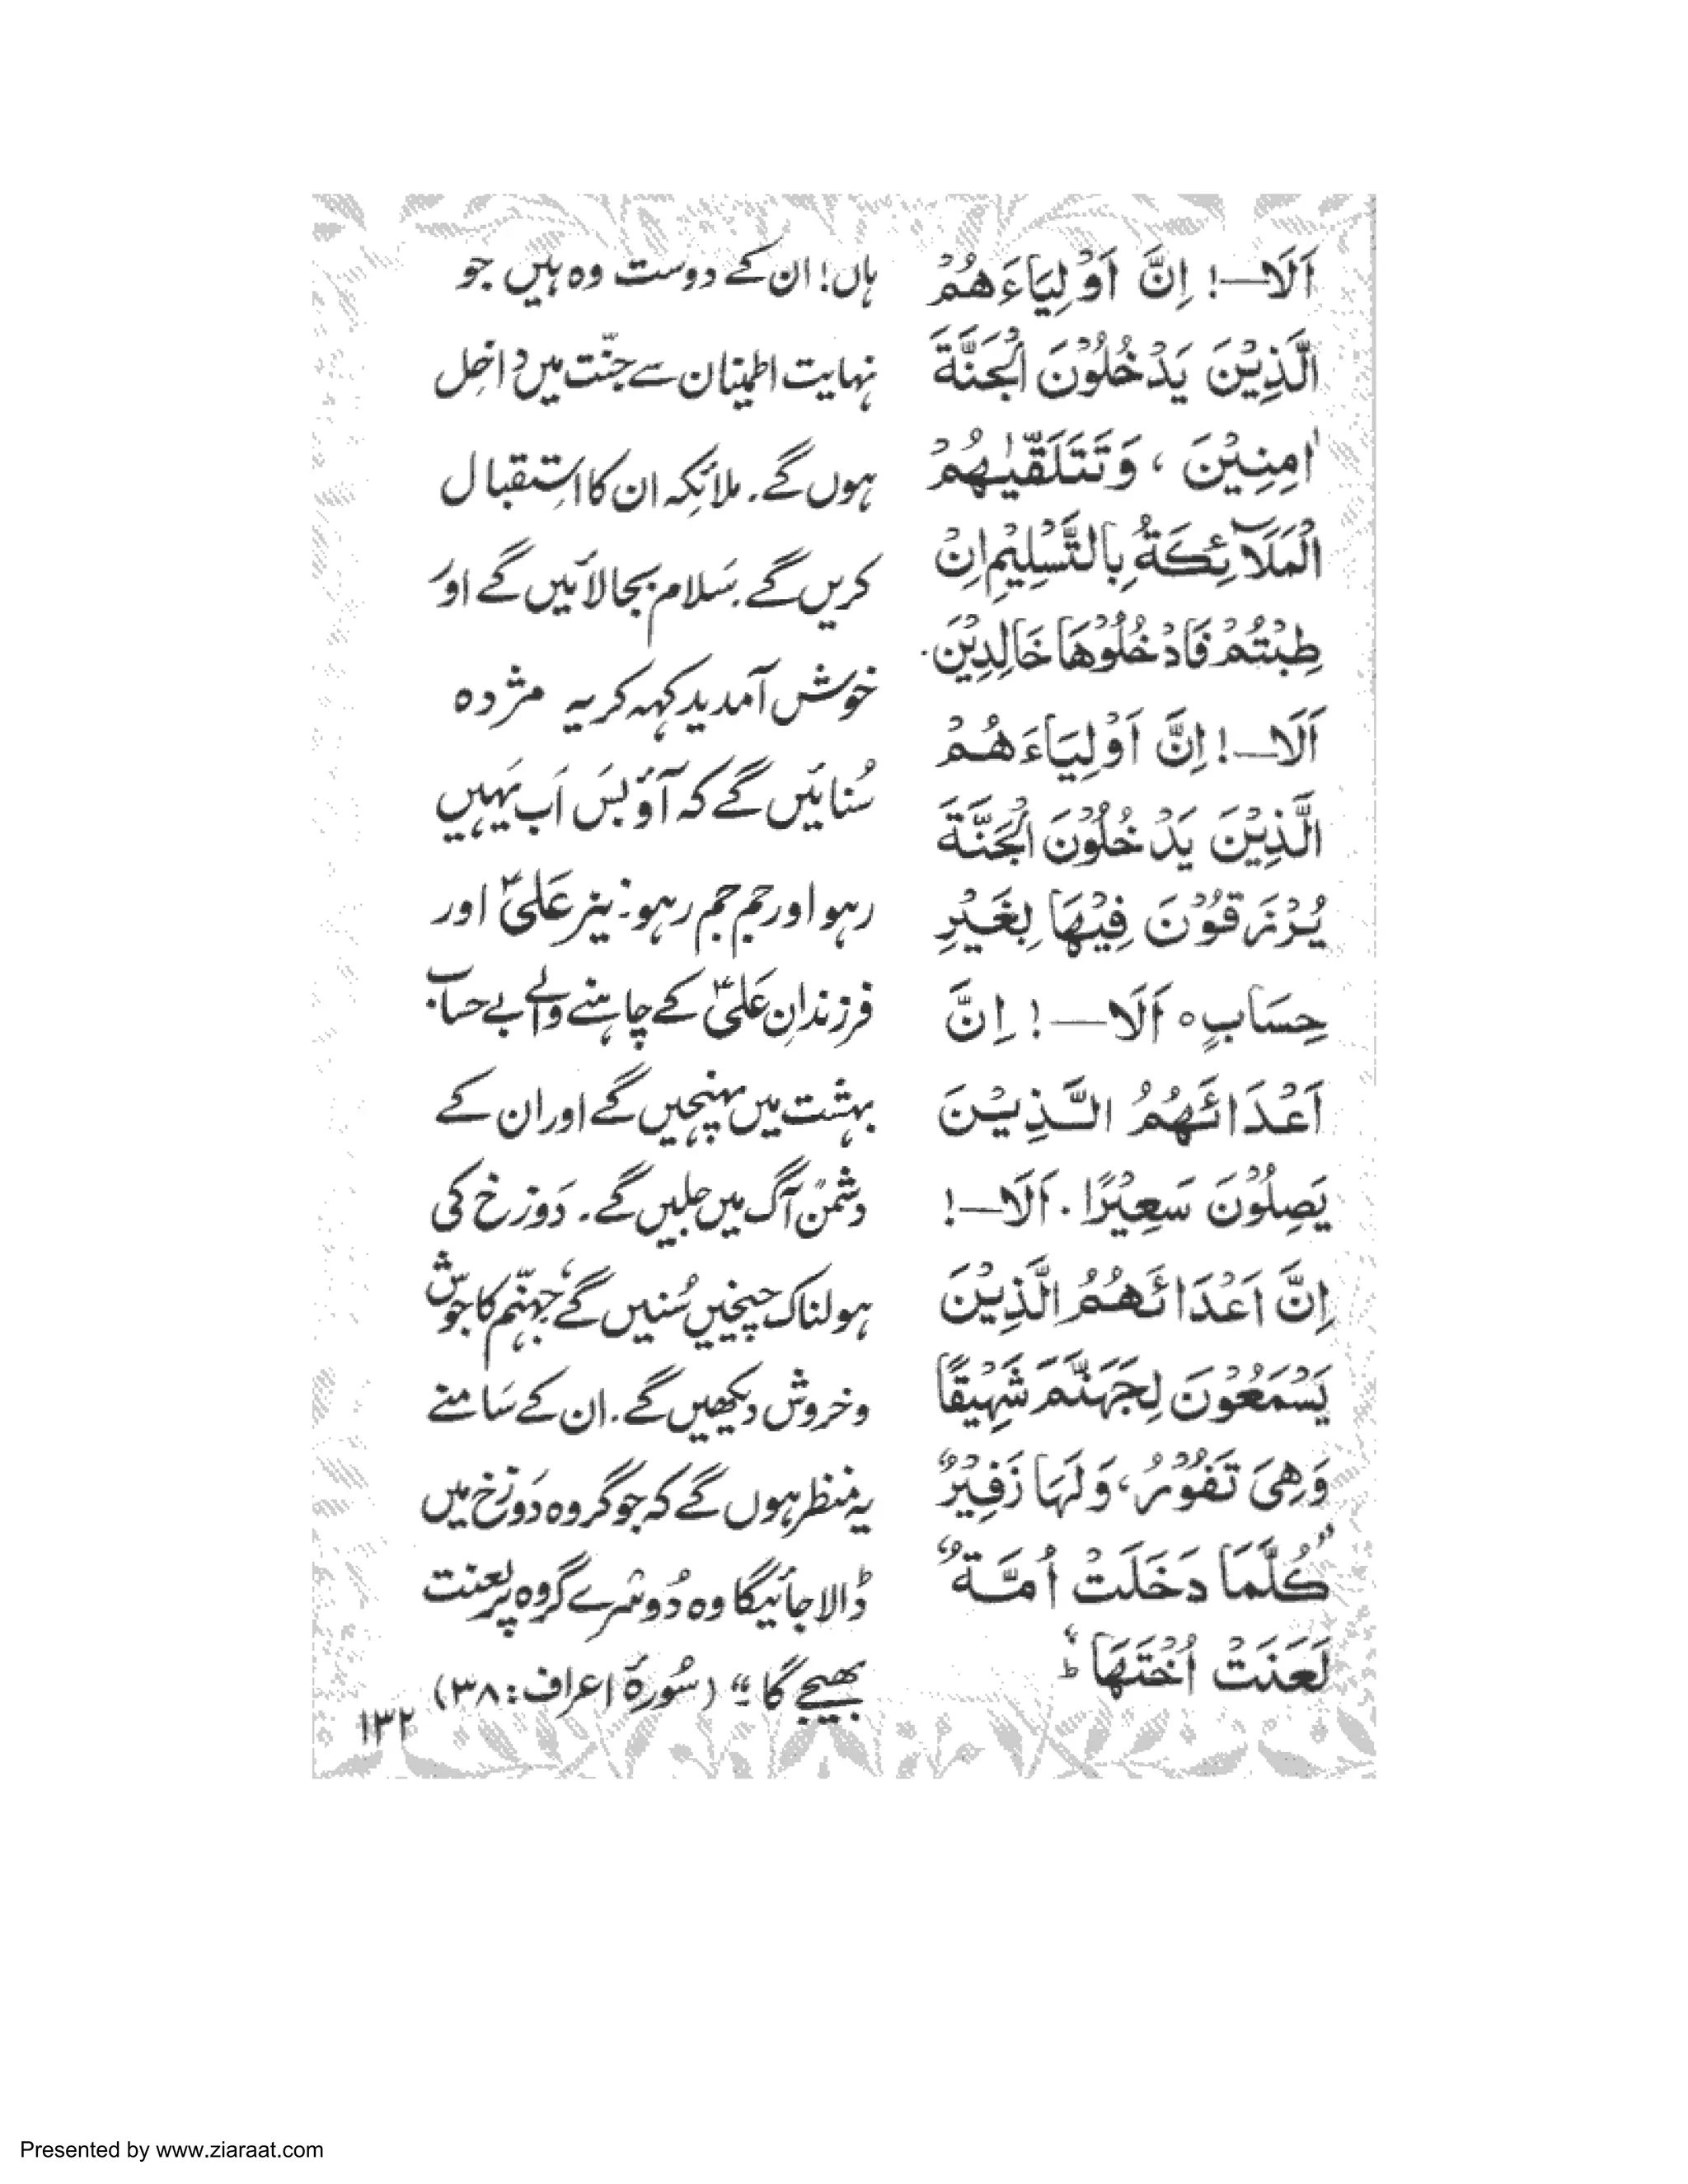 اَلَا—! اِنَّ اَوْلِيَاءَهُمْ
الَّذِيْنَ يَدْخُلُوْنَ الْجَنَّةَ
اٰمِنِيْنَ ، وَتَتَلَقّٰيهُمْ
الْمَلَآئِكَةُ بِالتَّسْلِيْمِ اِنْ
طِبْتُمْ فَادْخُلُوْهَا خَالِدِيْنَ.
اَلَا—! اِنَّ اَوْلِيَاءَهُمْ
الَّذِيْنَ يَدْخُلُوْنَ الْجَنَّةَ
يُرْزَقُوْنَ فِيْهَا بِغَيْرِ
حِسَابٍ ○ اَلَا—! اِنَّ
اَعْدَائَهُمُ الَّذِيْنَ
يَصِلُوْنَ سَعِيْرًا . اَلَا—!
اِنَّ اَعْدَائَهُمُ الَّذِيْنَ
يَسْمَعُوْنَ لِجَهَنَّمَ شَهِيْقًا
وَهِىَ تَفُوْرُ، وَلَهَا زَفِيْرٌ
"كُلَّمَا دَخَلَتْ اُمَّةٌ
لَعَنَتْ اُخْتَهَا ط
ہاں! ان کے دوست وہ ہیں جو
نہایت اطمینان سے جنّت میں داخِل
ہوں گے. ملائِکہ ان کا اسِتقبال
کریں گے. سَلام بجالائیں گے اور
خوش آمدید کہہ کر یہ مژدہ
سُنائیں گے کہ آؤ بسَ اَب یَہیں
رہو اور جم جم رہو: نیز عَلیؑ اور
فرزندانِ عَلیؑ کے چاہنے والے بے حساب
بہشت میں پہنچیں گے اور ان کے
دشمن آگ میں جلیں گے. دَوزخ کی
ہولناک چیخیں سُنیں گے، جہنّم کا جوش
وخروش دیکھیں گے. ان کے سَامنے
یہ منظر ہوں گے کہ جو گروہ دَوزخ میں
ڈالا جائیگا وہ دُوسرے گروہ پر لعنت
بھیجے گا ۔" (سُورۂ اعراف : ۳۸)
۱۳۲
Presented by www.ziaraat.com